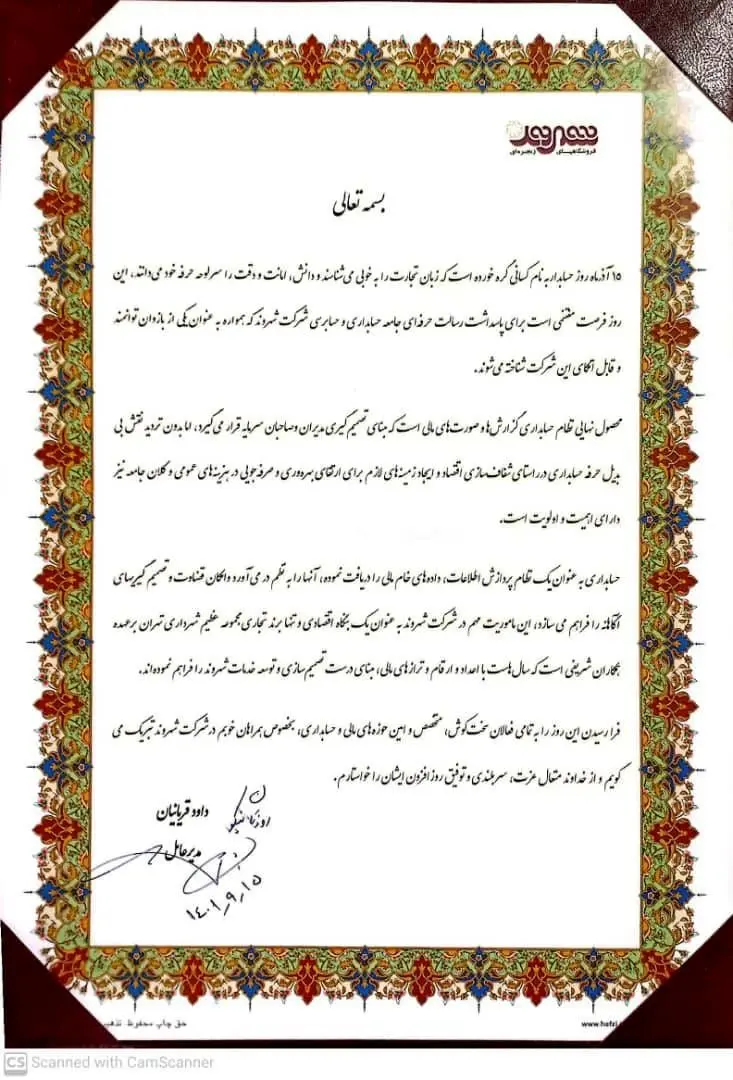 شهروند
فروشگاههای زنجیره‌ای
بسمه تعالی
۱۵ آذرماه روز حسابدار به نام کسانی گره خورده است که زبان تجارت را به خوبی می‌شناسند و دانش، امانت و دقت را سرلوحه حرفه خود می‌دانند، این
روز فرصت مغتنمی است برای پاسداشت رسالت حرفه‌ای جامعه حسابداری و حسابرسی شرکت شهروند که همواره به عنوان یکی از بازوان توانمند
و قابل اتکای این شرکت شناخته می‌شوند.
محصول نهایی نظام حسابداری گزارش‌ها و صورت‌های مالی است که مبنای تصمیم گیری مدیران و صاحبان سرمایه قرار می‌گیرد، اما بدون تردید نقش بی
بدیل حرفه حسابداری در راستای شفاف‌سازی اقتصاد و ایجاد زمینه‌های لازم برای ارتقای بهره‌وری و صرفه‌جویی در هزینه‌های عمومی و کلان جامعه نیز
دارای اهمیت و اولویت است.
حسابداری به عنوان یک نظام پردازش اطلاعات، داده‌های خام مالی را دریافت نموده، آنها را به نظم در می‌آورد و امکان قضاوت و تصمیم گیریهای
آگاهانه را فراهم می سازد، این ماموریت مهم در شرکت شهروند به عنوان یک بنگاه اقتصادی و تنها برند تجاری مجموعه عظیم شهرداری تهران برعهده
همکاران شریفی است که سال‌هاست با اعداد و ارقام و ترازهای مالی، مبنای درست تصمیم سازی و توسعه خدمات شهروند را فراهم نموده‌اند.
فرا رسیدن این روز را به تمامی فعالان سخت‌کوش، متخصص و امین حوزه‌های مالی و حسابداری، بخصوص همراهان خوبم در شرکت شهروند تبریک می
گویم و از خداوند متعال عزت، سربلندی و توفیق روز افزون ایشان را خواستارم.
داود قربانیان
مدیرعامل
۱۴۰۱٫۹٫۱۵
حق چاپ محفوظ
CS Scanned with CamScanner